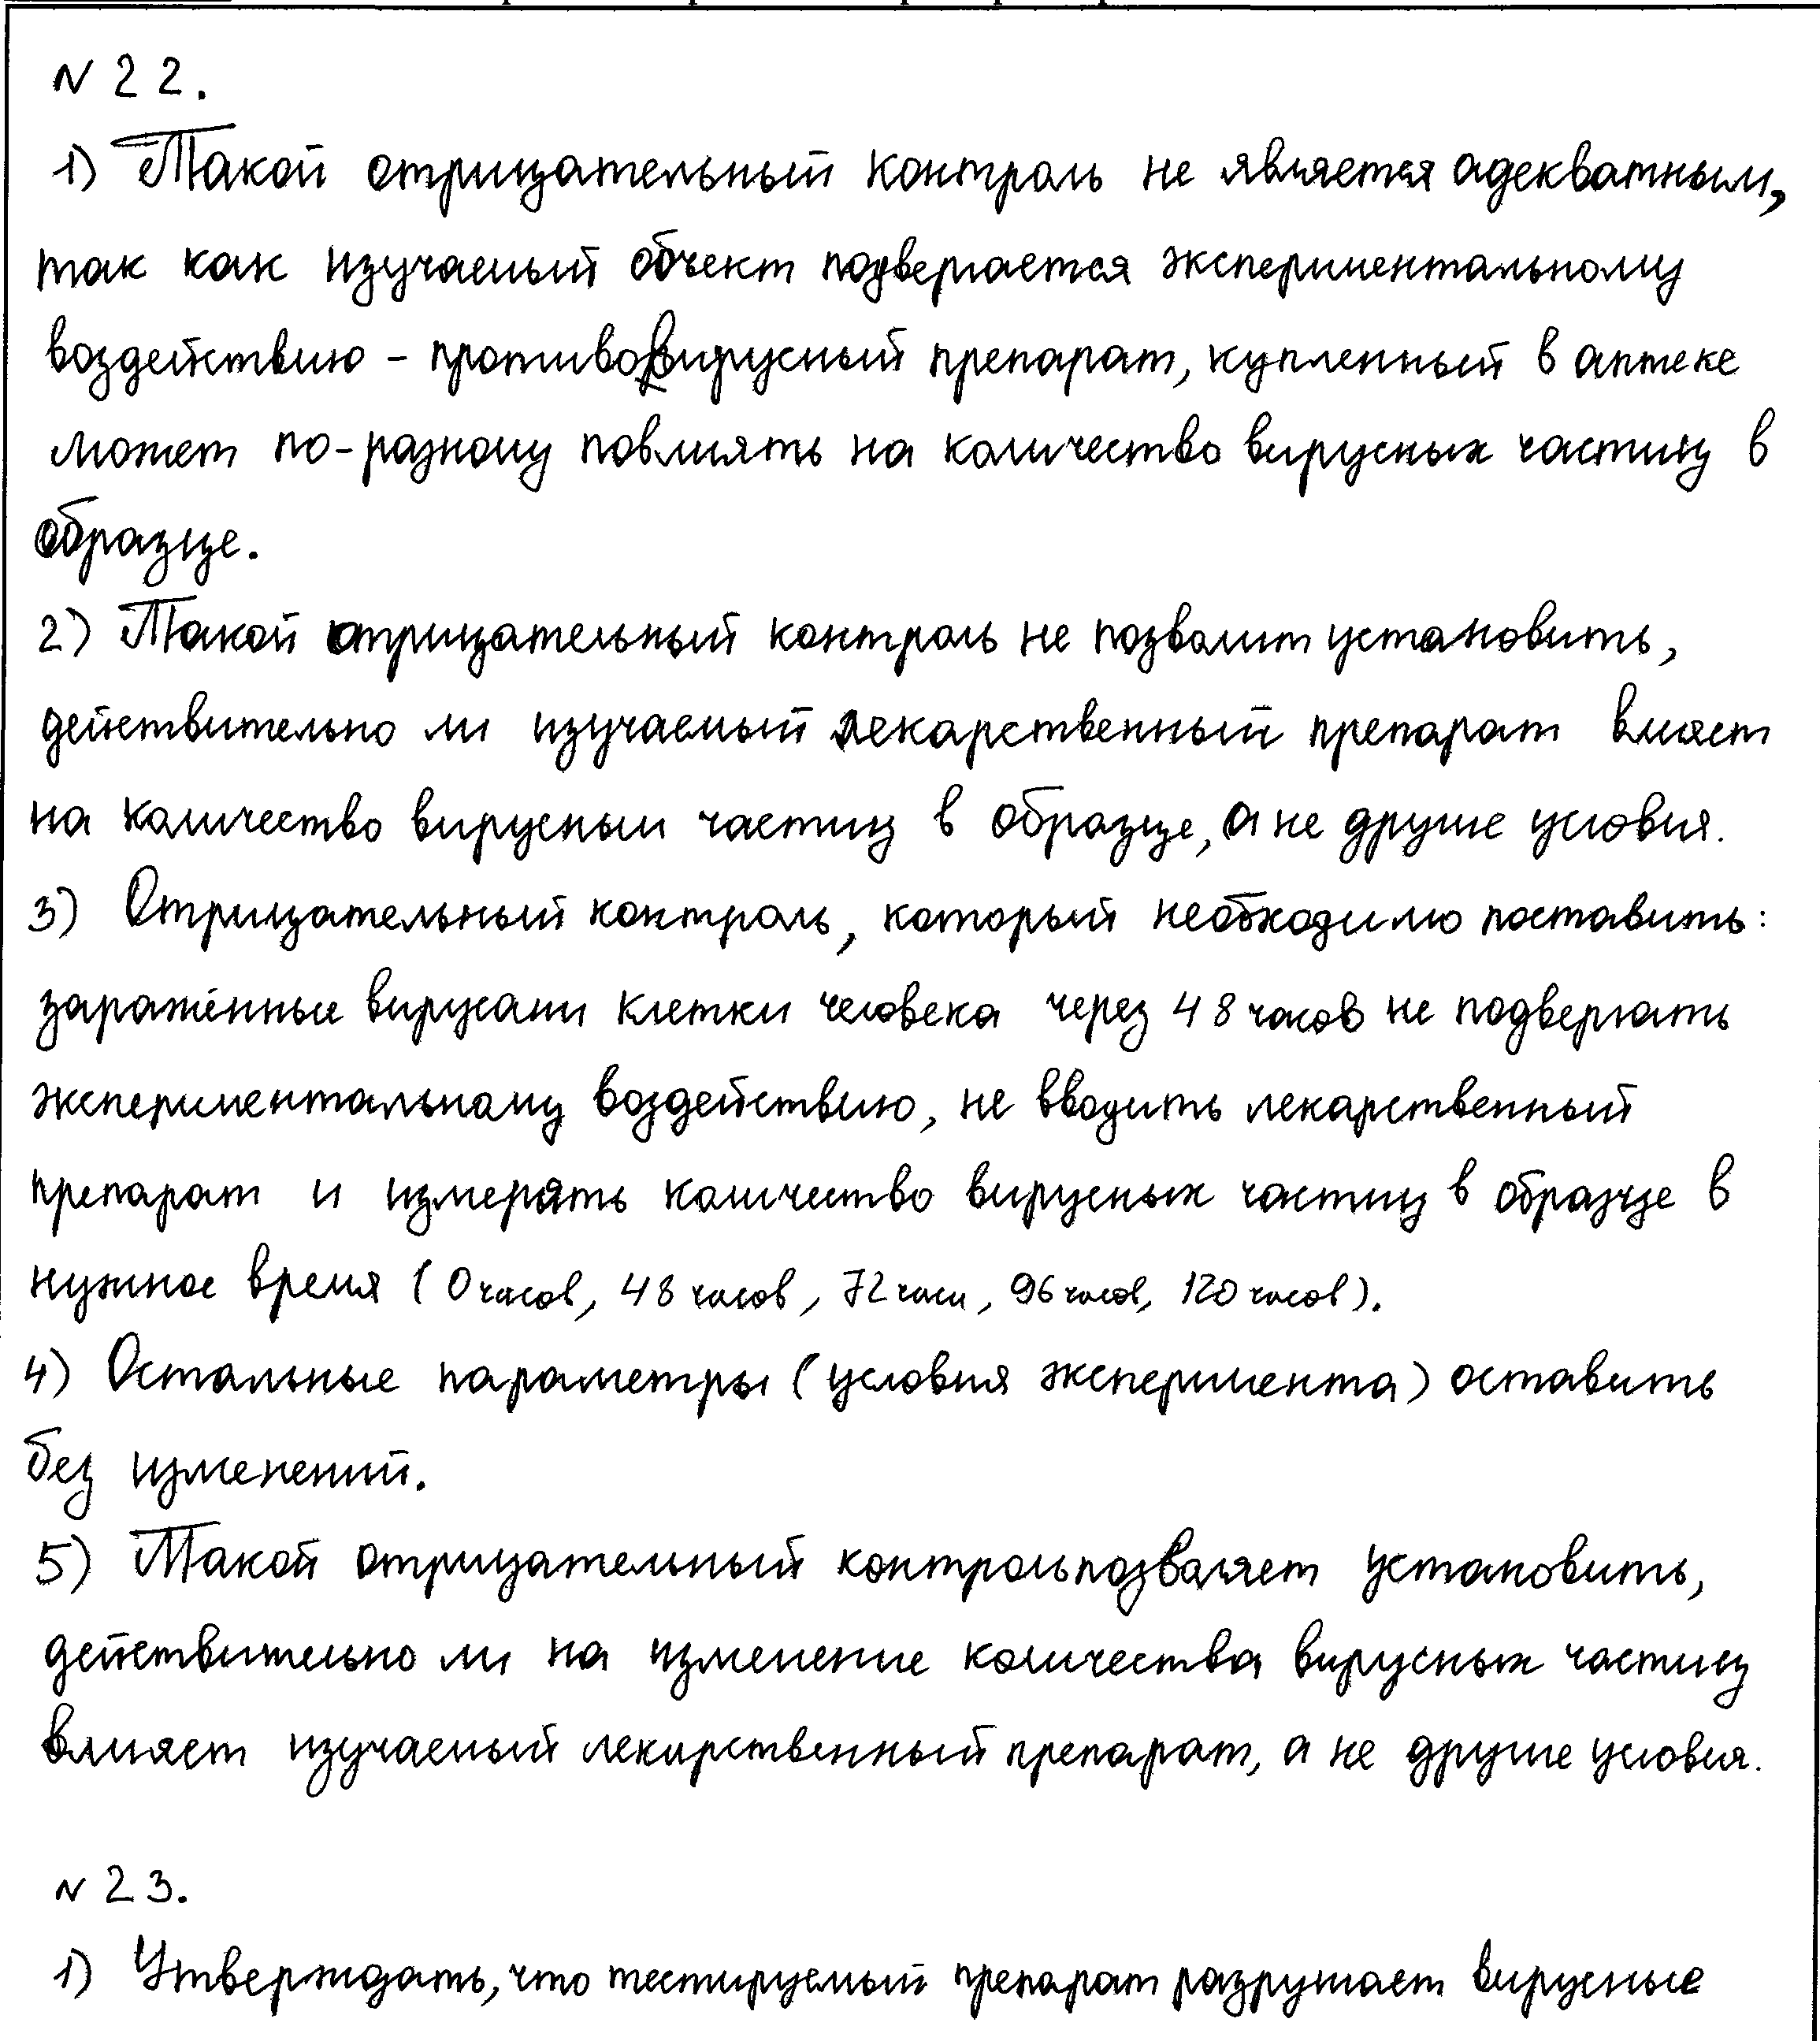 N 22.
1) Такой отрицательный контроль не является адекватным,
так как изучаемый объект подвергается экспериментальному
воздействию - противовирусный препарат, купленный в аптеке
может по-разному повлиять на количество вирусных частиц в
образце.
2) Такой отрицательный контроль не позволит установить,
действительно ли изучаемый лекарственный препарат влияет
на количество вирусным частиц в образце, а не другие условия.
3) Отрицательный контроль, который необходимо поставить:
заражённые вирусами клетки человека через 48 часов не подвергать
экспериментальному воздействию, не вводить лекарственный
препарат и измерять количество вирусных частиц в образце в
нужное время (0 часов, 48 часов, 72 часа, 96 часов, 120 часов).
4) Остальные параметры (условия эксперимента) оставить
без изменений.
5) Такой отрицательный контроль позволяет установить,
действительно ли на изменение количества вирусных частиц
влияет изучаемый лекарственный препарат, а не другие условия.
N 23.
1) Утверждать, что тестируемый препарат разрушает вирусные